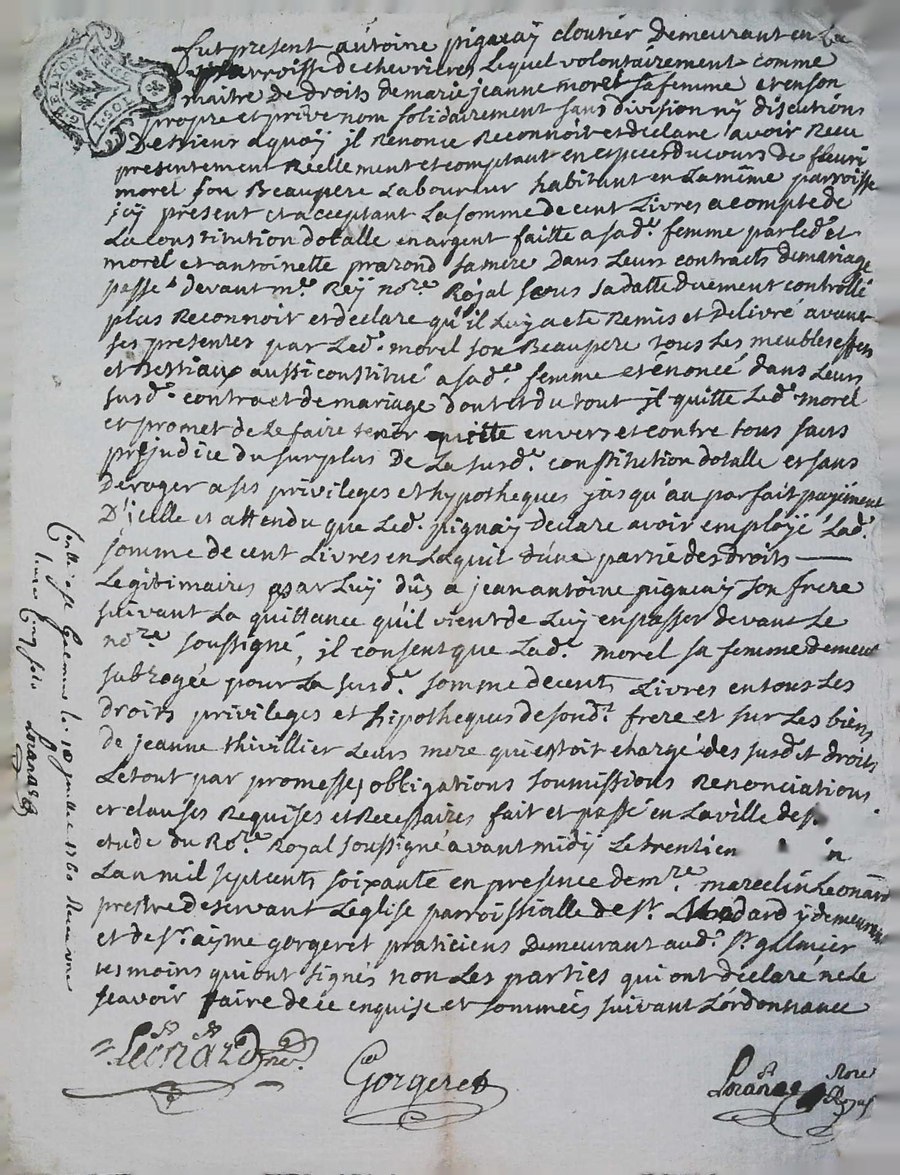 G. DE LYON
fut present antoine pignaÿ cloutier demeurant en la
parroisse de chevrieres Lequel volontairement comme
maitre de droits de marie jeanne morel sa femme et en son
propre et privé nom solidairement sans division nÿ discutions
De tiers aquoÿ il Renonce Reconnoit et declare avoir Receu
presentement Réellement et comptant en especes du cours de fleuri
morel son Beaupere Laboureur habitant en La même parroisse
jcÿ présent et acceptant La somme de cent Livres a compte de
La constitution dotalle en argent faitte a sad.e femme par led.t
morel et antoinette prazond sa mere Dans Leurs contracts de mariage
passé devant m.e Reÿ no.re Roÿal sous sa datte duement controllé
plus Reconnoit et declare qu'il Luÿ a eté Remis et Delivré avant
ses presentes par Led.t morel son Beaupere tous Les meubles effets
et Bestiaux aussi constitué a sad.e femme et énoncé dans Leurs
susd.t contract de mariage dont et du tout il quitte Led.t morel
et promet de Le faire tenir quitte envers et contre tous sans
préjudice du surplus De La susd.e constitution dotalle et sans
Deroger a ses privileges et hypotheques jusqu'au parfait paÿement
D'icelle et attendu que Led.t pignaÿ Declare avoir emploÿé Lad.e
somme de cent Livres en Laquit d'une partie des droits
Legitimaires par Luÿ dûs a jean antoine pignaÿ son frere
suivant La quittance qu'il vient de Luÿ en passer devant Le
no.re soussigné, il consent que Lad.e morel sa femme demeure
subrogée pour La susd.e somme de cents Livres en tous Les
Droits privileges et hipotheques de sond.t frere et sur Les biens
de jeanne thivillier Leurs mere qui estoit chargé des susd.t droits
Le tout par promesses obligations soumissions Renonciations
et clauses Requises et Necessaires fait et passé en La ville de S.
etude du No.re Roÿal soussigné avant midÿ Le trentien
Lan mil sept cents soixante en presence de m.re marcelin Leonard
prestre deservant L'eglise parroissialle de S.t Medard ÿ demeurant
et de S.r aÿme gorgeret praticiens Demeurant aud.t S.t galmier
tesmoins qui ont signés non Les parties qui ont déclaré ne Le
sçavoir faire de ce enquise et sommées suivant L'ordonnance
Leonard
Gorgeret
Nore Royal
Galmier le 10 juillet 1760 Receu une
livre cinq sols